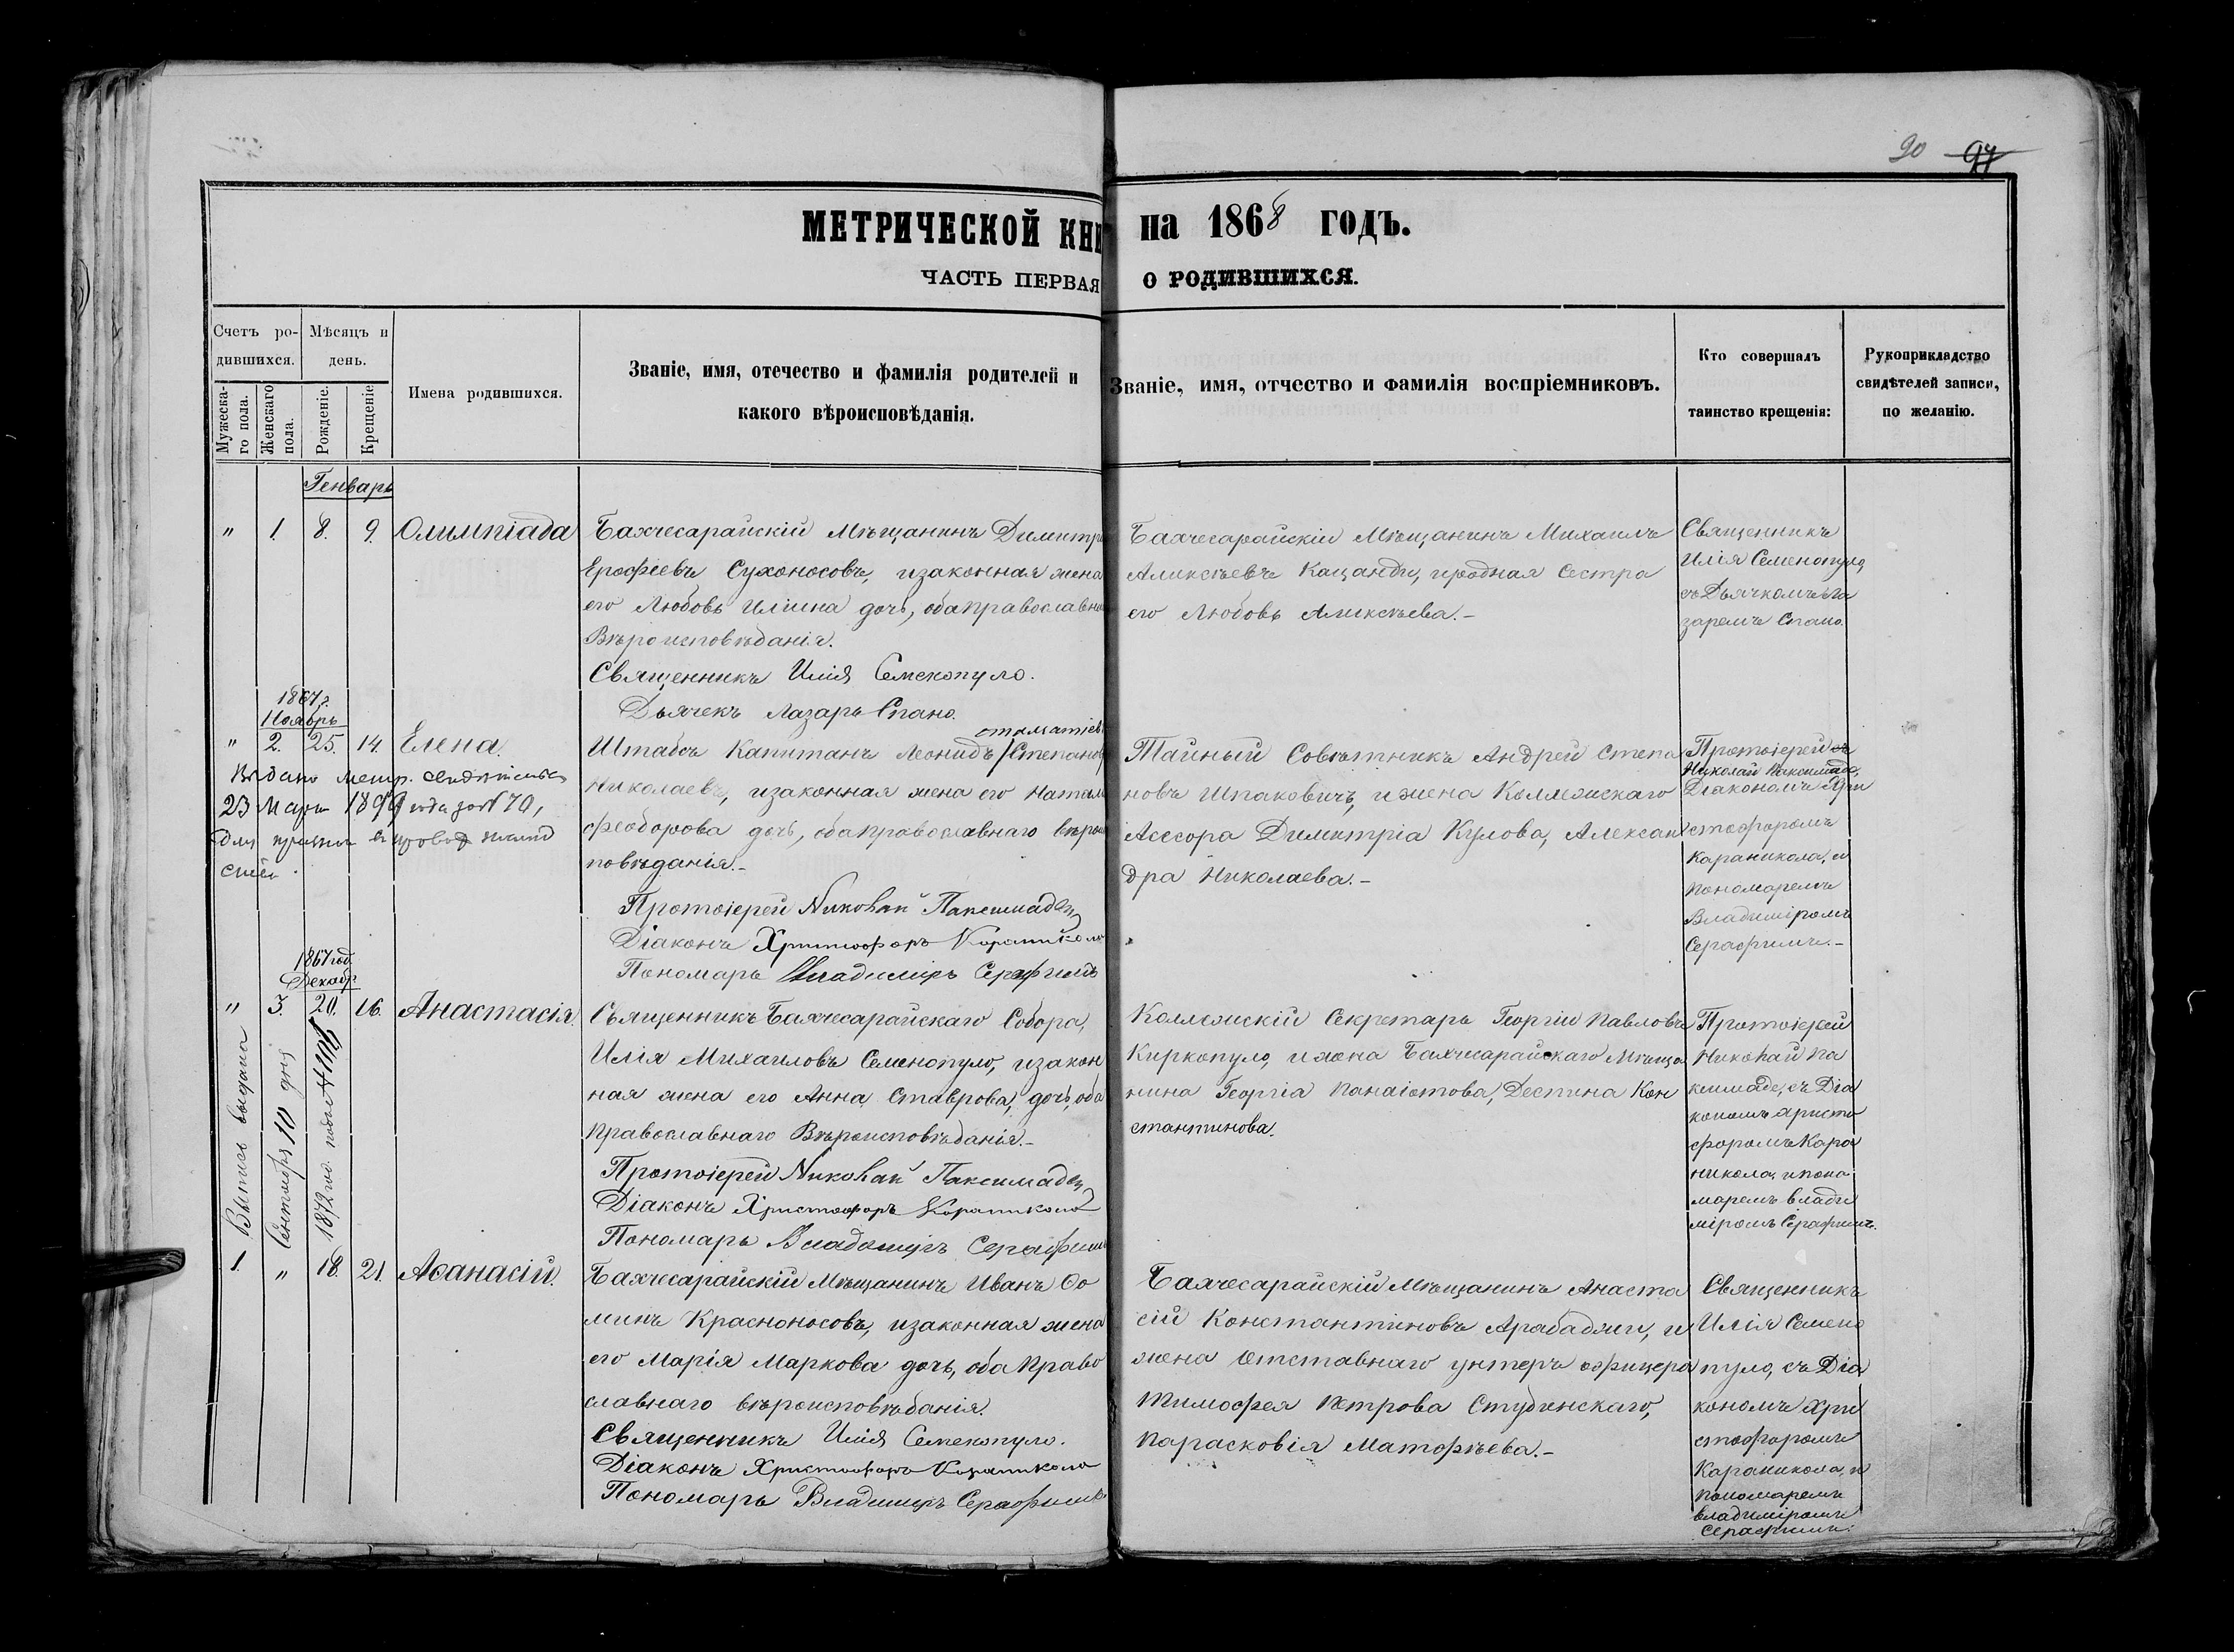 90 97
МЕТРИЧЕСКОЙ КНИ на 1868 ГОДЪ.
ЧАСТЬ ПЕРВАЯ О РОДИВШИХСЯ.
Счетъ ро-
дившихся.
Мѣсяцъ и
день.
Мужеска-
го пола.
Женскаго
пола.
Рожденіе.
Крещеніе
Имена родившихся.
Званіе, имя, отечество и фамилія родителей и
какого вѣроисповѣданія.
Званіе, имя, отчество и фамилія воспріемниковъ.
Кто совершалъ
таинство крещенія:
Рукоприкладство
свидѣтелей записи,
по желанію.
Генварь
" 1. 8. 9. Олимпіада
Бахчесарайскій Мѣщанинъ Димитрі
Ерофѣевъ Сухоносовъ, и законная жена
его Любовь Иліина дочь, оба православна
Вѣроисповѣданія.
Священникъ Илія Семенопуло.
Дьячекъ Лазарь Спано.
Бахчесарайскіи Мѣщанинъ Михаилъ
Алексѣевъ Кацанди, и родная сестра
его Любовь Алексѣева.-
Священникъ
Илія Семенопуло,
съ Дьячкомъ Ла
заремъ Спано.
1867 г.
Ноябрь
" 2. 25. 14. Елена.
Выдано метр. свидѣтельст
23 Марта 1899 года за № 70,
Штабсъ Капитанъ Леонидъ Степанов
Николаевъ, и законная жена его Натал
Феодорова дочь, оба православнаго вѣрои
повѣданія.-
Протоіерей Николай Паксимаде
Діаконъ Христофоръ Караникола
Пономарь Владиміръ Серафимъ
Тайный Совѣтникъ Андрей Степа
новъ Шпаковичъ, и жена Коллежскаго
Асесора Димитріа Кулова, Алексан
дра Николаева.-
Протоіерей съ
Николай Паксимаде,
Діакономъ Хри
стофоромъ
Караникола, и
пономаремъ
Владиміромъ
Серафимъ.-
1867 год.
Декабр
" 3. 20. 16. Анастасія.
Выпись выдана
Сентября 10 дня
1872 год. подъ №
Священникъ Бахчесарайскаго Собора,
Илія Михаиловъ Семенопуло, и закон
ная жена его Анна Ставрова, дочь, оба
православнаго Вѣроисповѣданія.-
Протоіерей Николай Паксимаде
Діаконъ Христофоръ Караникола
Пономарь Владиміръ Серафим
Коллежскій Секретарь Георгіи Павловъ
Киркопуло, и жена Бахчисарайскаго Мѣща
нина Георгіа Панаіотова, Деспина Кон
стантинова.
Протоіерей
Николай Па
ксимаде, съ Діа
кономъ Христо
форомъ Кара
никола, и поно
маремъ Влади
міромъ Серафимъ.
1. " 18. 21. Аѳанасій.
Бахчесарайскій Мѣщанинъ Иванъ Ѳо
минъ Красноносовъ, и законная жена
его Марія Маркова дочь, оба право
славнаго вѣроисповѣданія.
Священникъ Илія Семенопуло.
Діаконъ Христофоръ Караникола
Пономарь Владиміръ Серафимъ
Бахчесарайскій Мѣщанинъ Анаста
сій Константиновъ Арабаджи, и
жена Отставнаго унтеръ офицера
Тимофея Петрова Студинскаго,
Парасковія Матфѣева.-
Священникъ
Илія Семено
пуло, съ Діа
кономъ Хри
стофоромъ
Караникола, и
пономаремъ
Владиміромъ
Серафимъ.